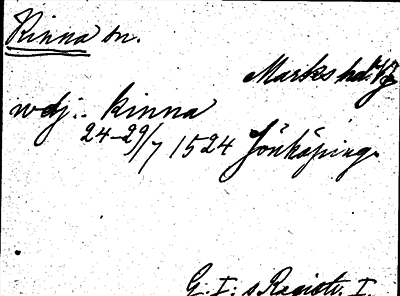 Kinna sn.
Marks hd. Vg
wdj.. kinna
24-29/7 1524 Jönköping.
G. I:s Registr. I.